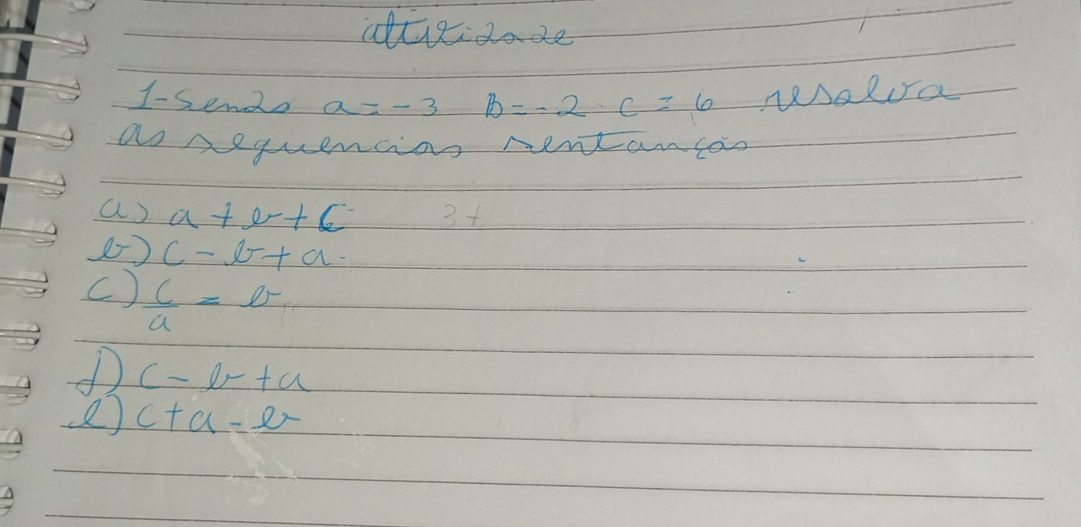 atividade
1-Sendo a = -3 B = -2 c = 6 resolva
as sequencias sentanças
a) a + b + C 3+
b) c - b + a.
c) c/a = b
d) c - b + a
e) c + a - b